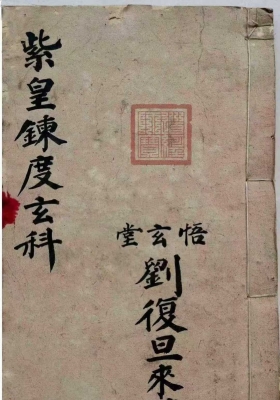 紫皇鍊度玄科
悟玄堂
劉復旦來